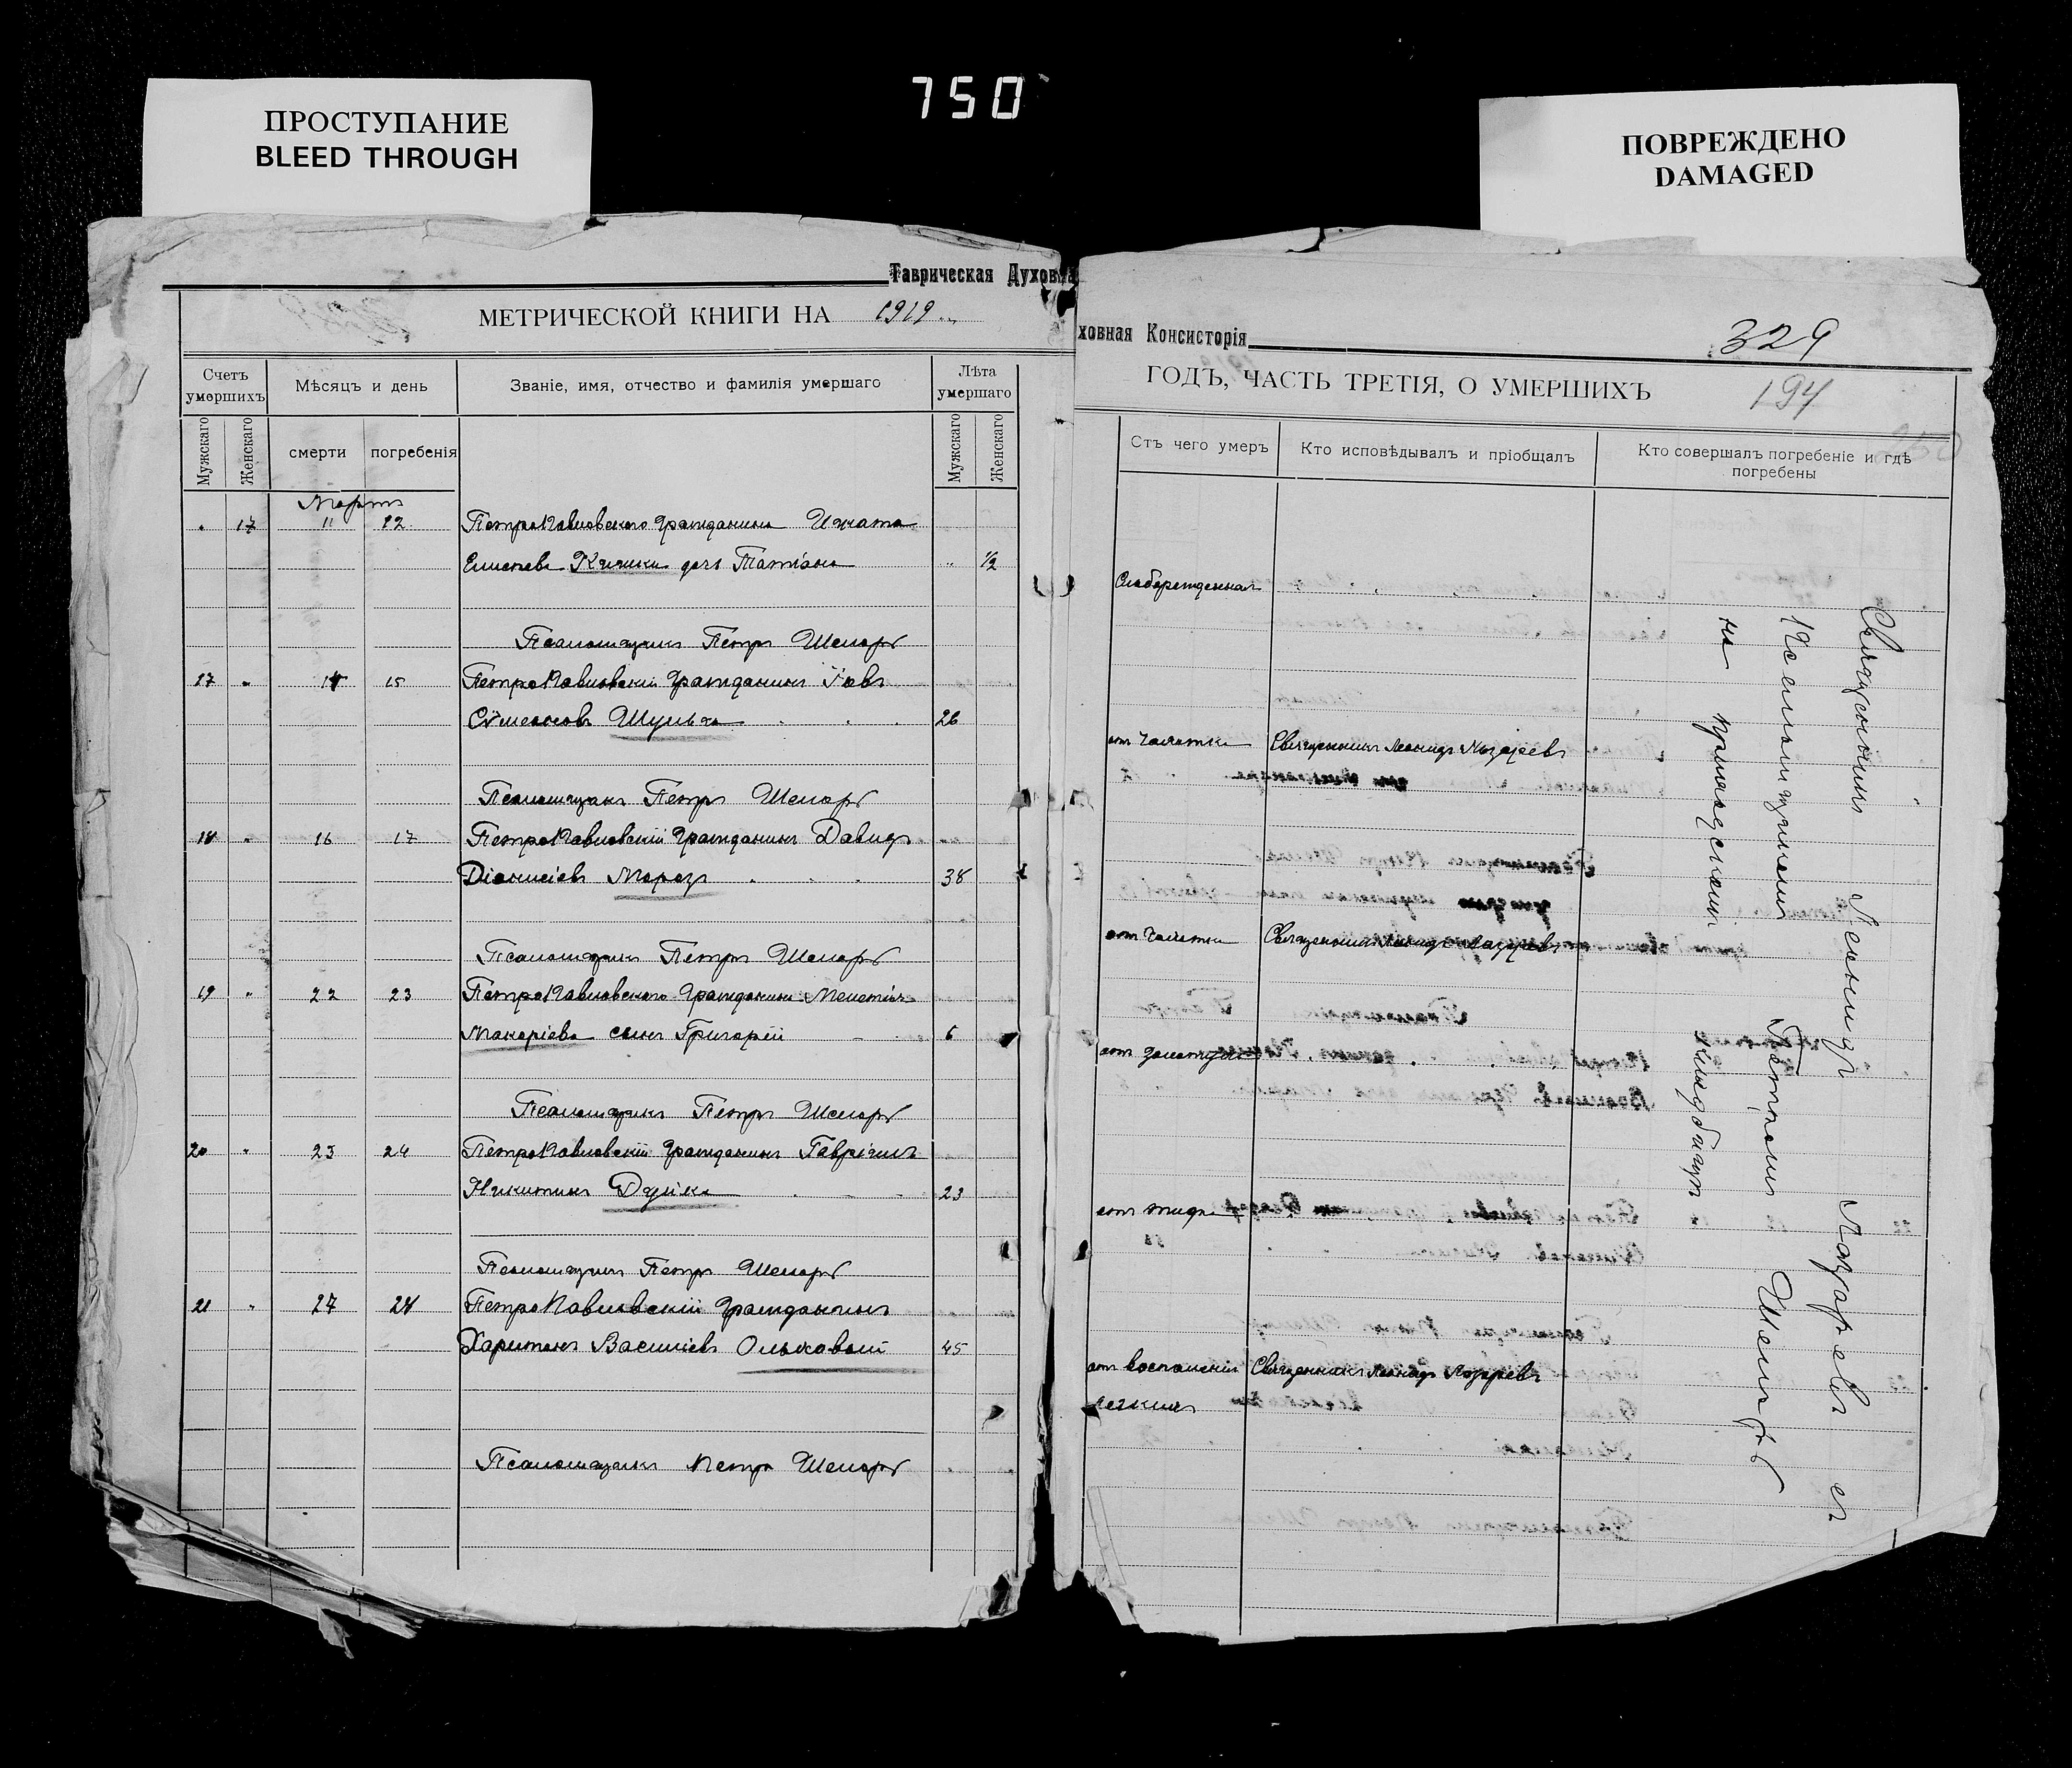 750
ПРОСТУПАНИЕ
BLEED THROUGH
ПОВРЕЖДЕНО
DAMAGED
Таврическая Духовна
МЕТРИЧЕСКОЙ КНИГИ НА 1919
Счетъ умершихъ
Мѣсяцъ и день
Званіе, имя, отчество и фамилія умершаго
Лѣта умершаго
Мужскаго
Женскаго
смерти
погребенія
Мужскаго
Женскаго
Мартъ
17 11 12 ПетроПавловскаго гражданина Игната
Елисеева дочь Татіана 1/2
Псаломщикъ Петръ Шепарь
17 14 15 ПетроПавловскій гражданинъ Іовъ
Сѵмеоновъ Шульга 26
Псаломщикъ Петръ Шепарь
18 16 17 ПетроПавловскій гражданинъ Давидъ
Діонисіевъ Морозъ 38
Псаломщикъ Петръ Шепарь
19 22 23 ПетроПавловскаго гражданина Мелетія
Макаріева сынъ Григорій 6
Псаломщикъ Петръ Шепарь
20 23 24 ПетроПавловскій гражданинъ Гавріилъ
Никитинъ Дуйка 23
Псаломщикъ Петръ Шепарь
21 27 28 ПетроПавловскій гражданинъ
Харитонъ Василіевъ Ольховый 45
Псаломщикъ Петръ Шепарь
ховная Консисторія
329
ГОДЪ, ЧАСТЬ ТРЕТІЯ, О УМЕРШИХЪ
194
Отъ чего умеръ
Кто исповѣдывалъ и пріобщалъ
Кто совершалъ погребеніе и гдѣ погребены
Слаборожденная
отъ чахотки Священникъ Леонидъ Лазаревъ
отъ чахотки Священникъ Леонидъ Лазаревъ
отъ
отъ тифа
отъ воспаленія Священникъ Леонидъ Лазаревъ
легкихъ
Священникъ Леонидъ Лазаревъ съ
Псаломщикомъ Петромъ Шепарь
на приходскомъ кладбищѣ